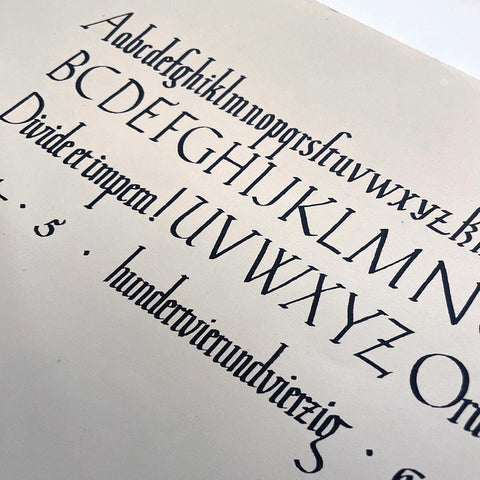 Aabcdefghiklmnopqrsſtuvwxyz
BCDEFGHIJKLMN
Divide et impera! UVWXYZ
· 5 · hundertvierundvierzig ·